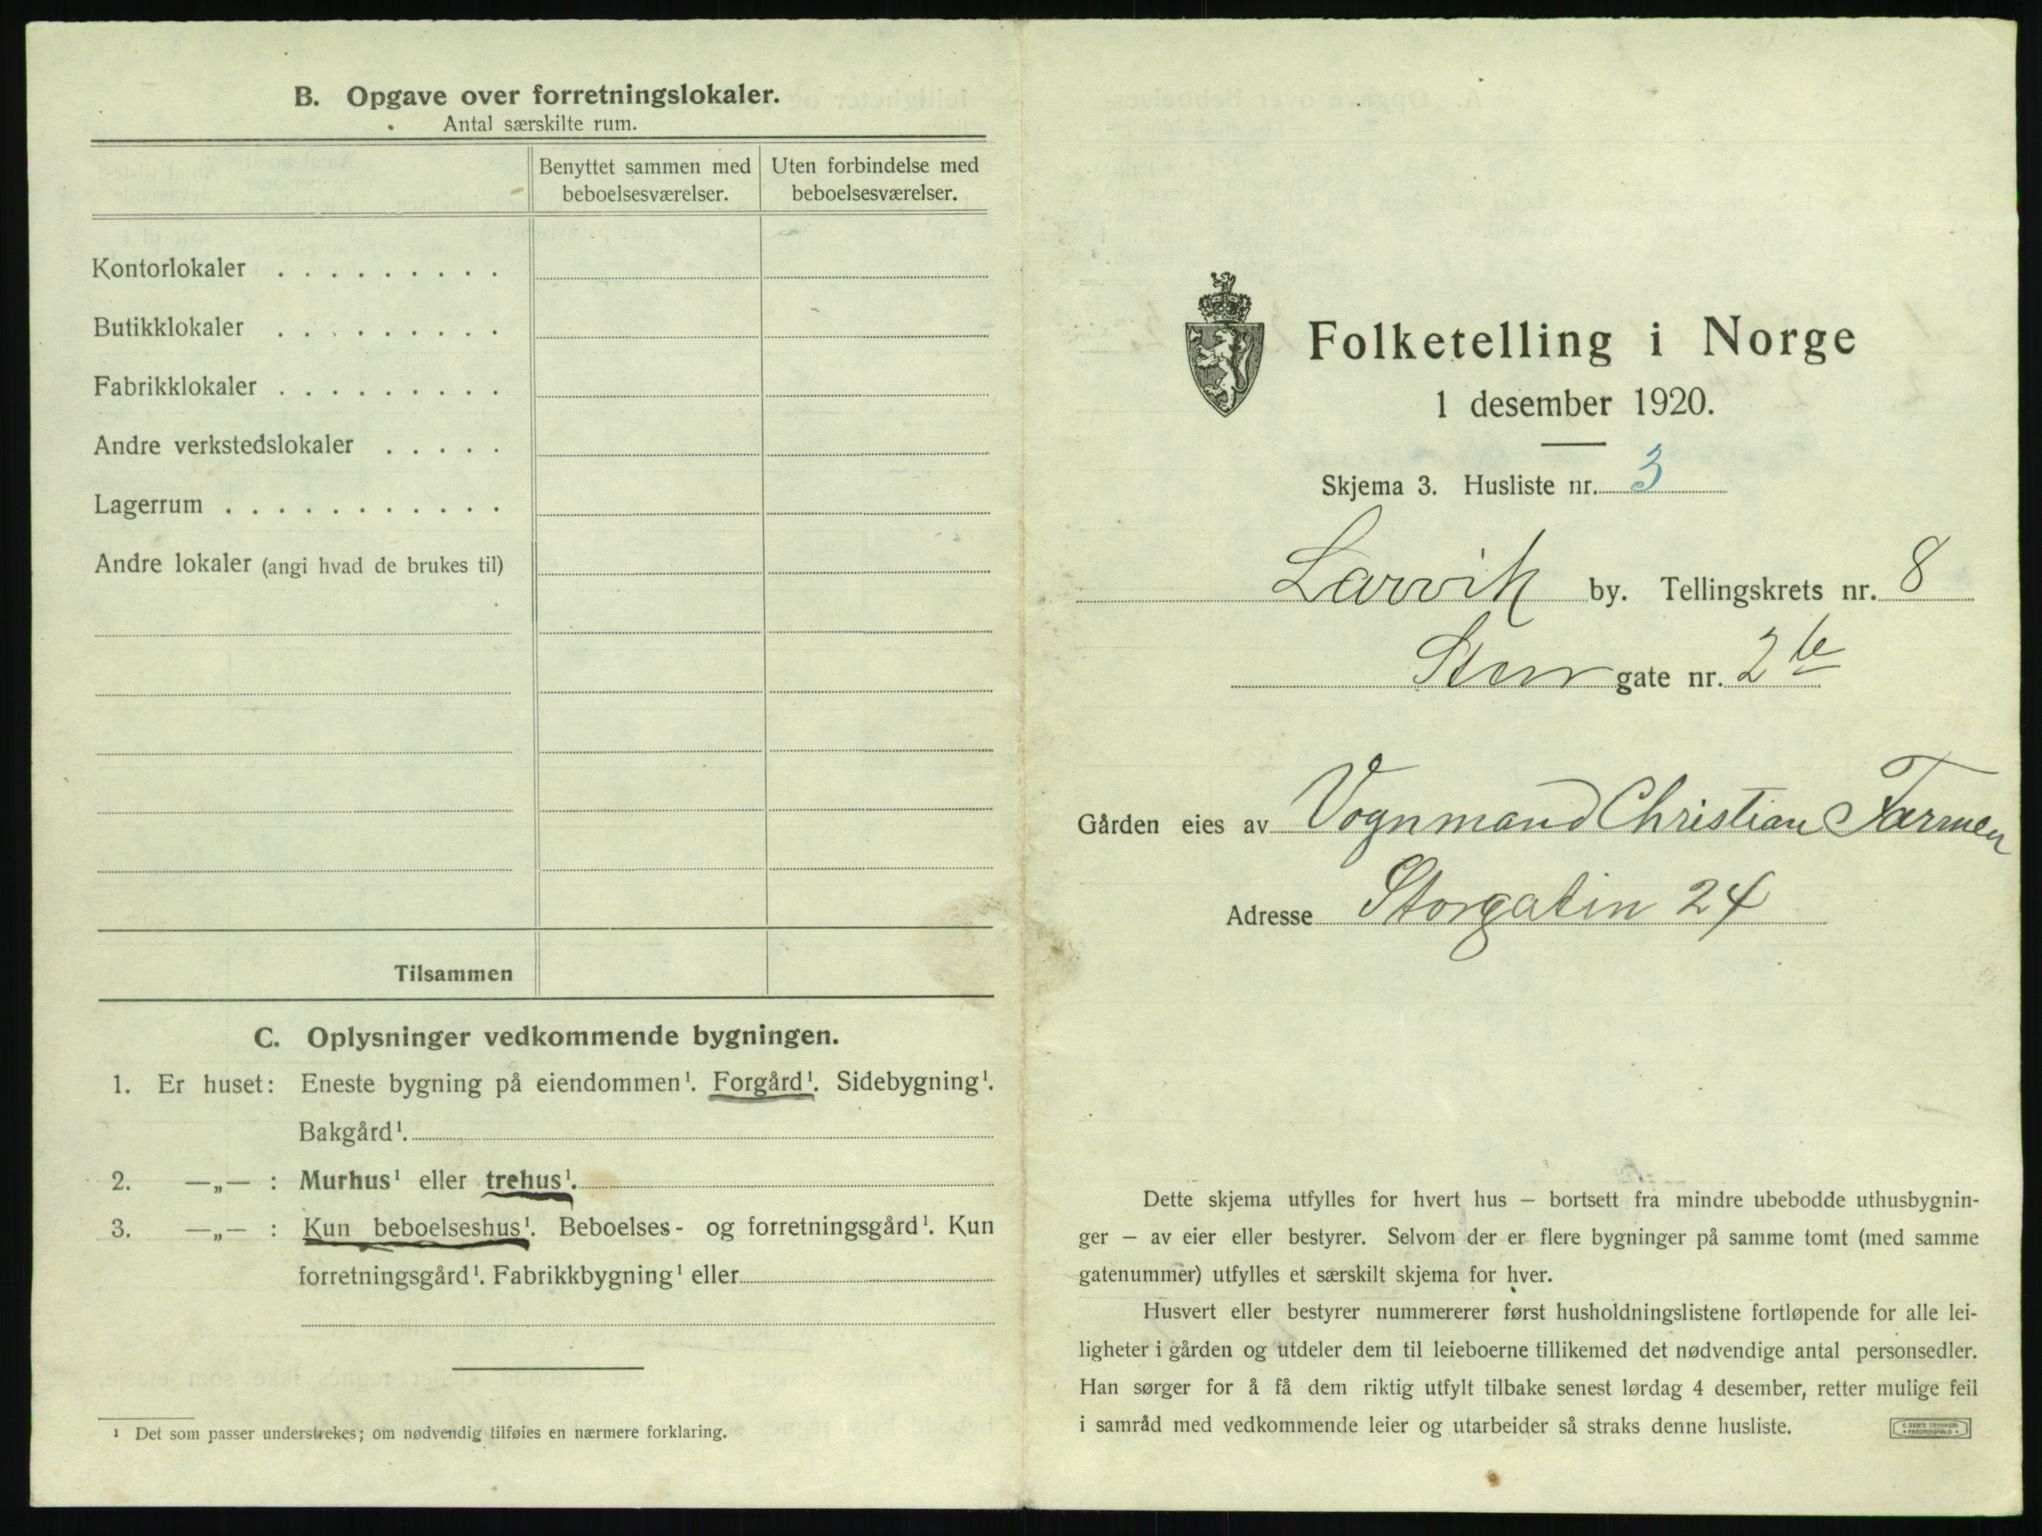 B. Opgave over forretningslokaler.
Antal særskilte rum.
Benyttet sammen med beboelsesværelser.
Uten forbindelse med beboelsesværelser.
Kontorlokaler . . . . . . . . .
Butikklokaler . . . . . . . . .
Fabrikklokaler . . . . . . . . .
Andre verkstedslokaler . . . . .
Lagerrum . . . . . . . . . . .
Andre lokaler (angi hvad de brukes til)
Tilsammen
C. Oplysninger vedkommende bygningen.
1. Er huset: Eneste bygning på eiendommen¹. Forgård¹. Sidebygning¹.
Bakgård¹.
2. —„— : Murhus¹ eller trehus¹.
3. —„— : Kun beboelseshus¹. Beboelses- og forretningsgård¹. Kun
forretningsgård¹. Fabrikkbygning¹ eller
¹ Det som passer understrekes; om nødvendig tilføies en nærmere forklaring.
Folketelling i Norge
1 desember 1920.
Skjema 3. Husliste nr. 3
Larvik by. Tellingskrets nr. 8
Stor gate nr. 2
Gården eies av Vognmand Christian Farmen
Adresse Storgatin 24
Dette skjema utfylles for hvert hus – bortsett fra mindre ubebodde uthusbygnin-
ger – av eier eller bestyrer. Selvom der er flere bygninger på samme tomt (med samme
gatenummer) utfylles et særskilt skjema for hver.
Husvert eller bestyrer nummererer først husholdningslistene fortløpende for alle lei-
ligheter i gården og utdeler dem til leieboerne tillikemed det nødvendige antal personsedler.
Han sørger for å få dem riktig utfylt tilbake senest lørdag 4 desember, retter mulige feil
i samråd med vedkommende leier og utarbeider så straks denne husliste.